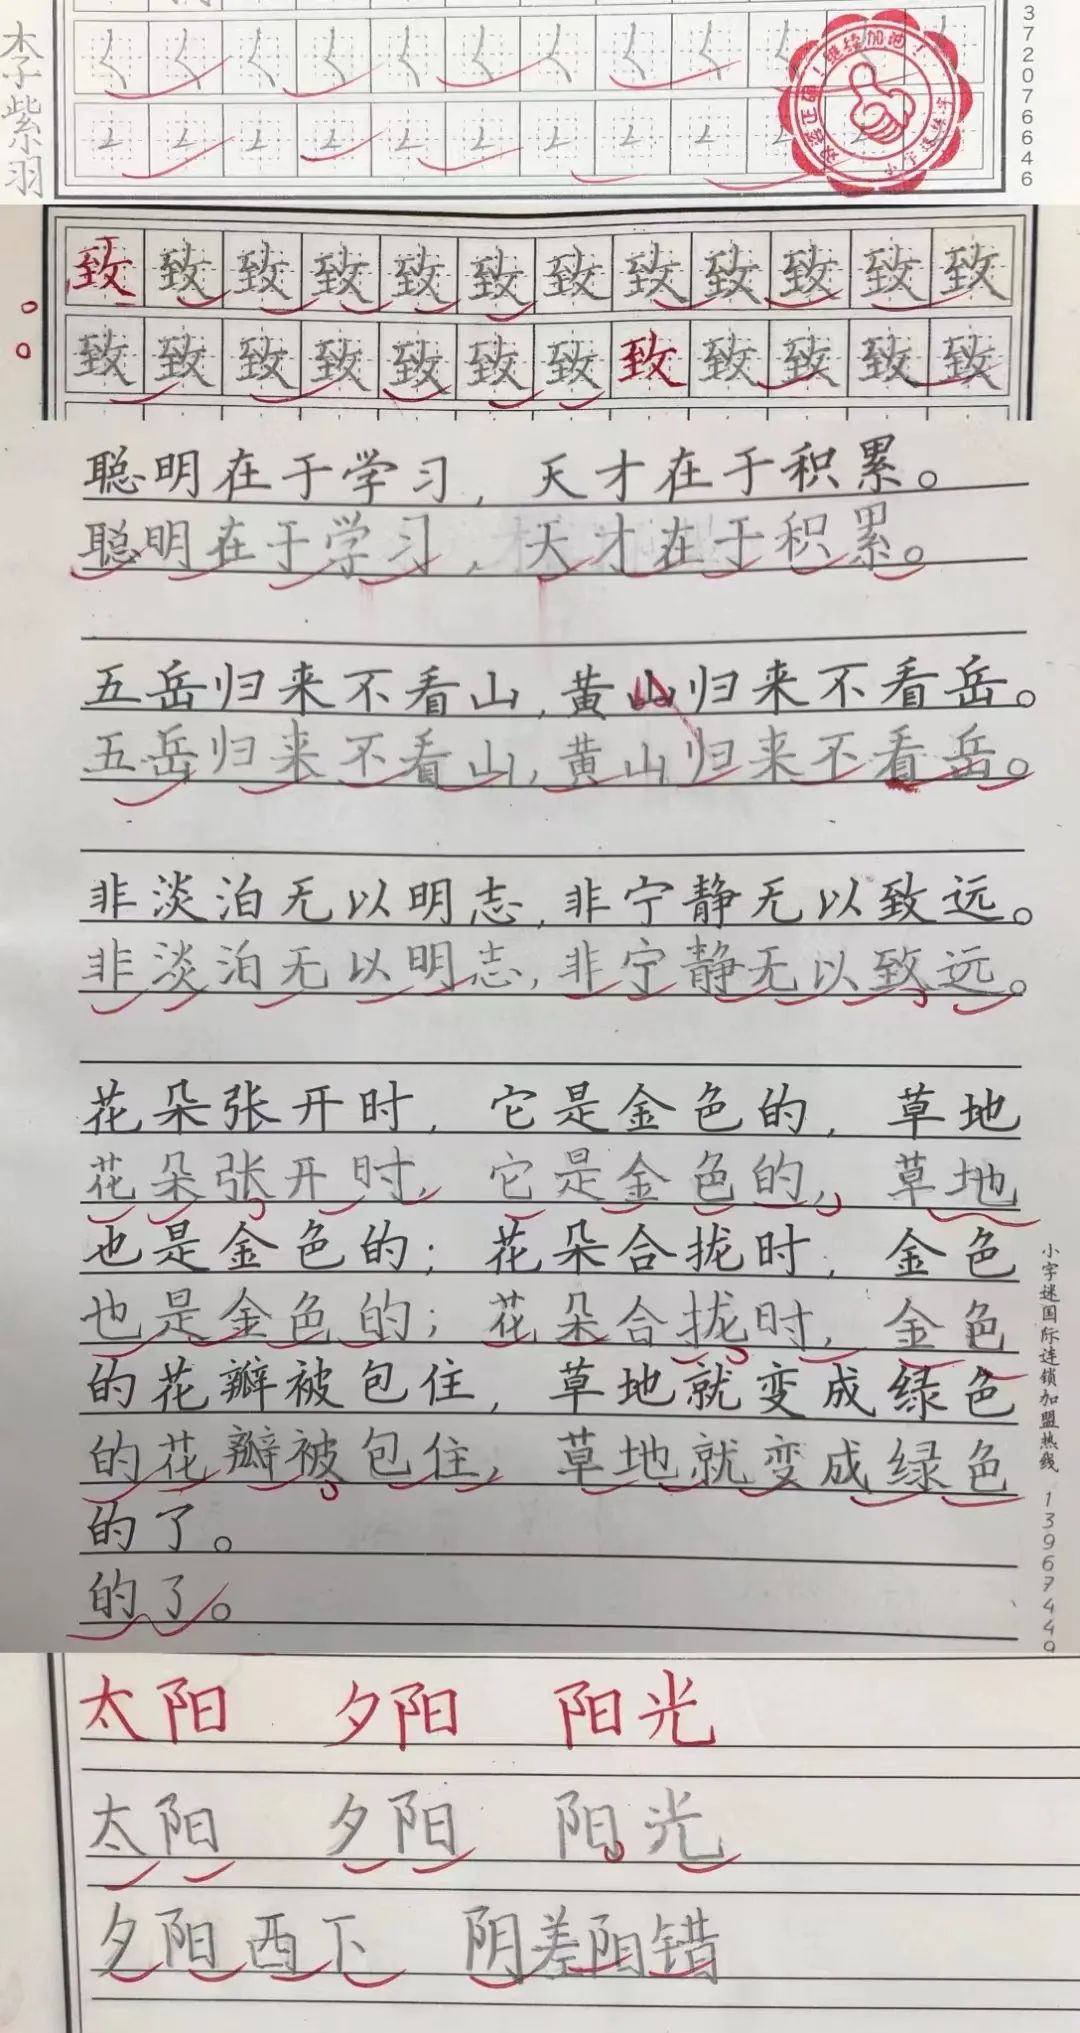 李紫羽
372076646
继续加油！
小字迷练字
致致致致致致致致致致致致
致致致致致致致致致致致致
聪明在于学习，天才在于积累。
聪明在于学习，天才在于积累。
五岳归来不看山，黄山归来不看岳。
五岳归来不看山，黄山归来不看岳。
非淡泊无以明志，非宁静无以致远。
非淡泊无以明志，非宁静无以致远。
花朵张开时，它是金色的，草地
花朵张开时，它是金色的，草地
也是金色的；花朵合拢时，金色
也是金色的；花朵合拢时，金色
的花瓣被包住，草地就变成绿色
的花瓣被包住，草地就变成绿色
的了。
的了。
小字迷国际连锁加盟热线 13967449
太阳 夕阳 阳光
太阳 夕阳 阳光
夕阳西下 阴差阳错